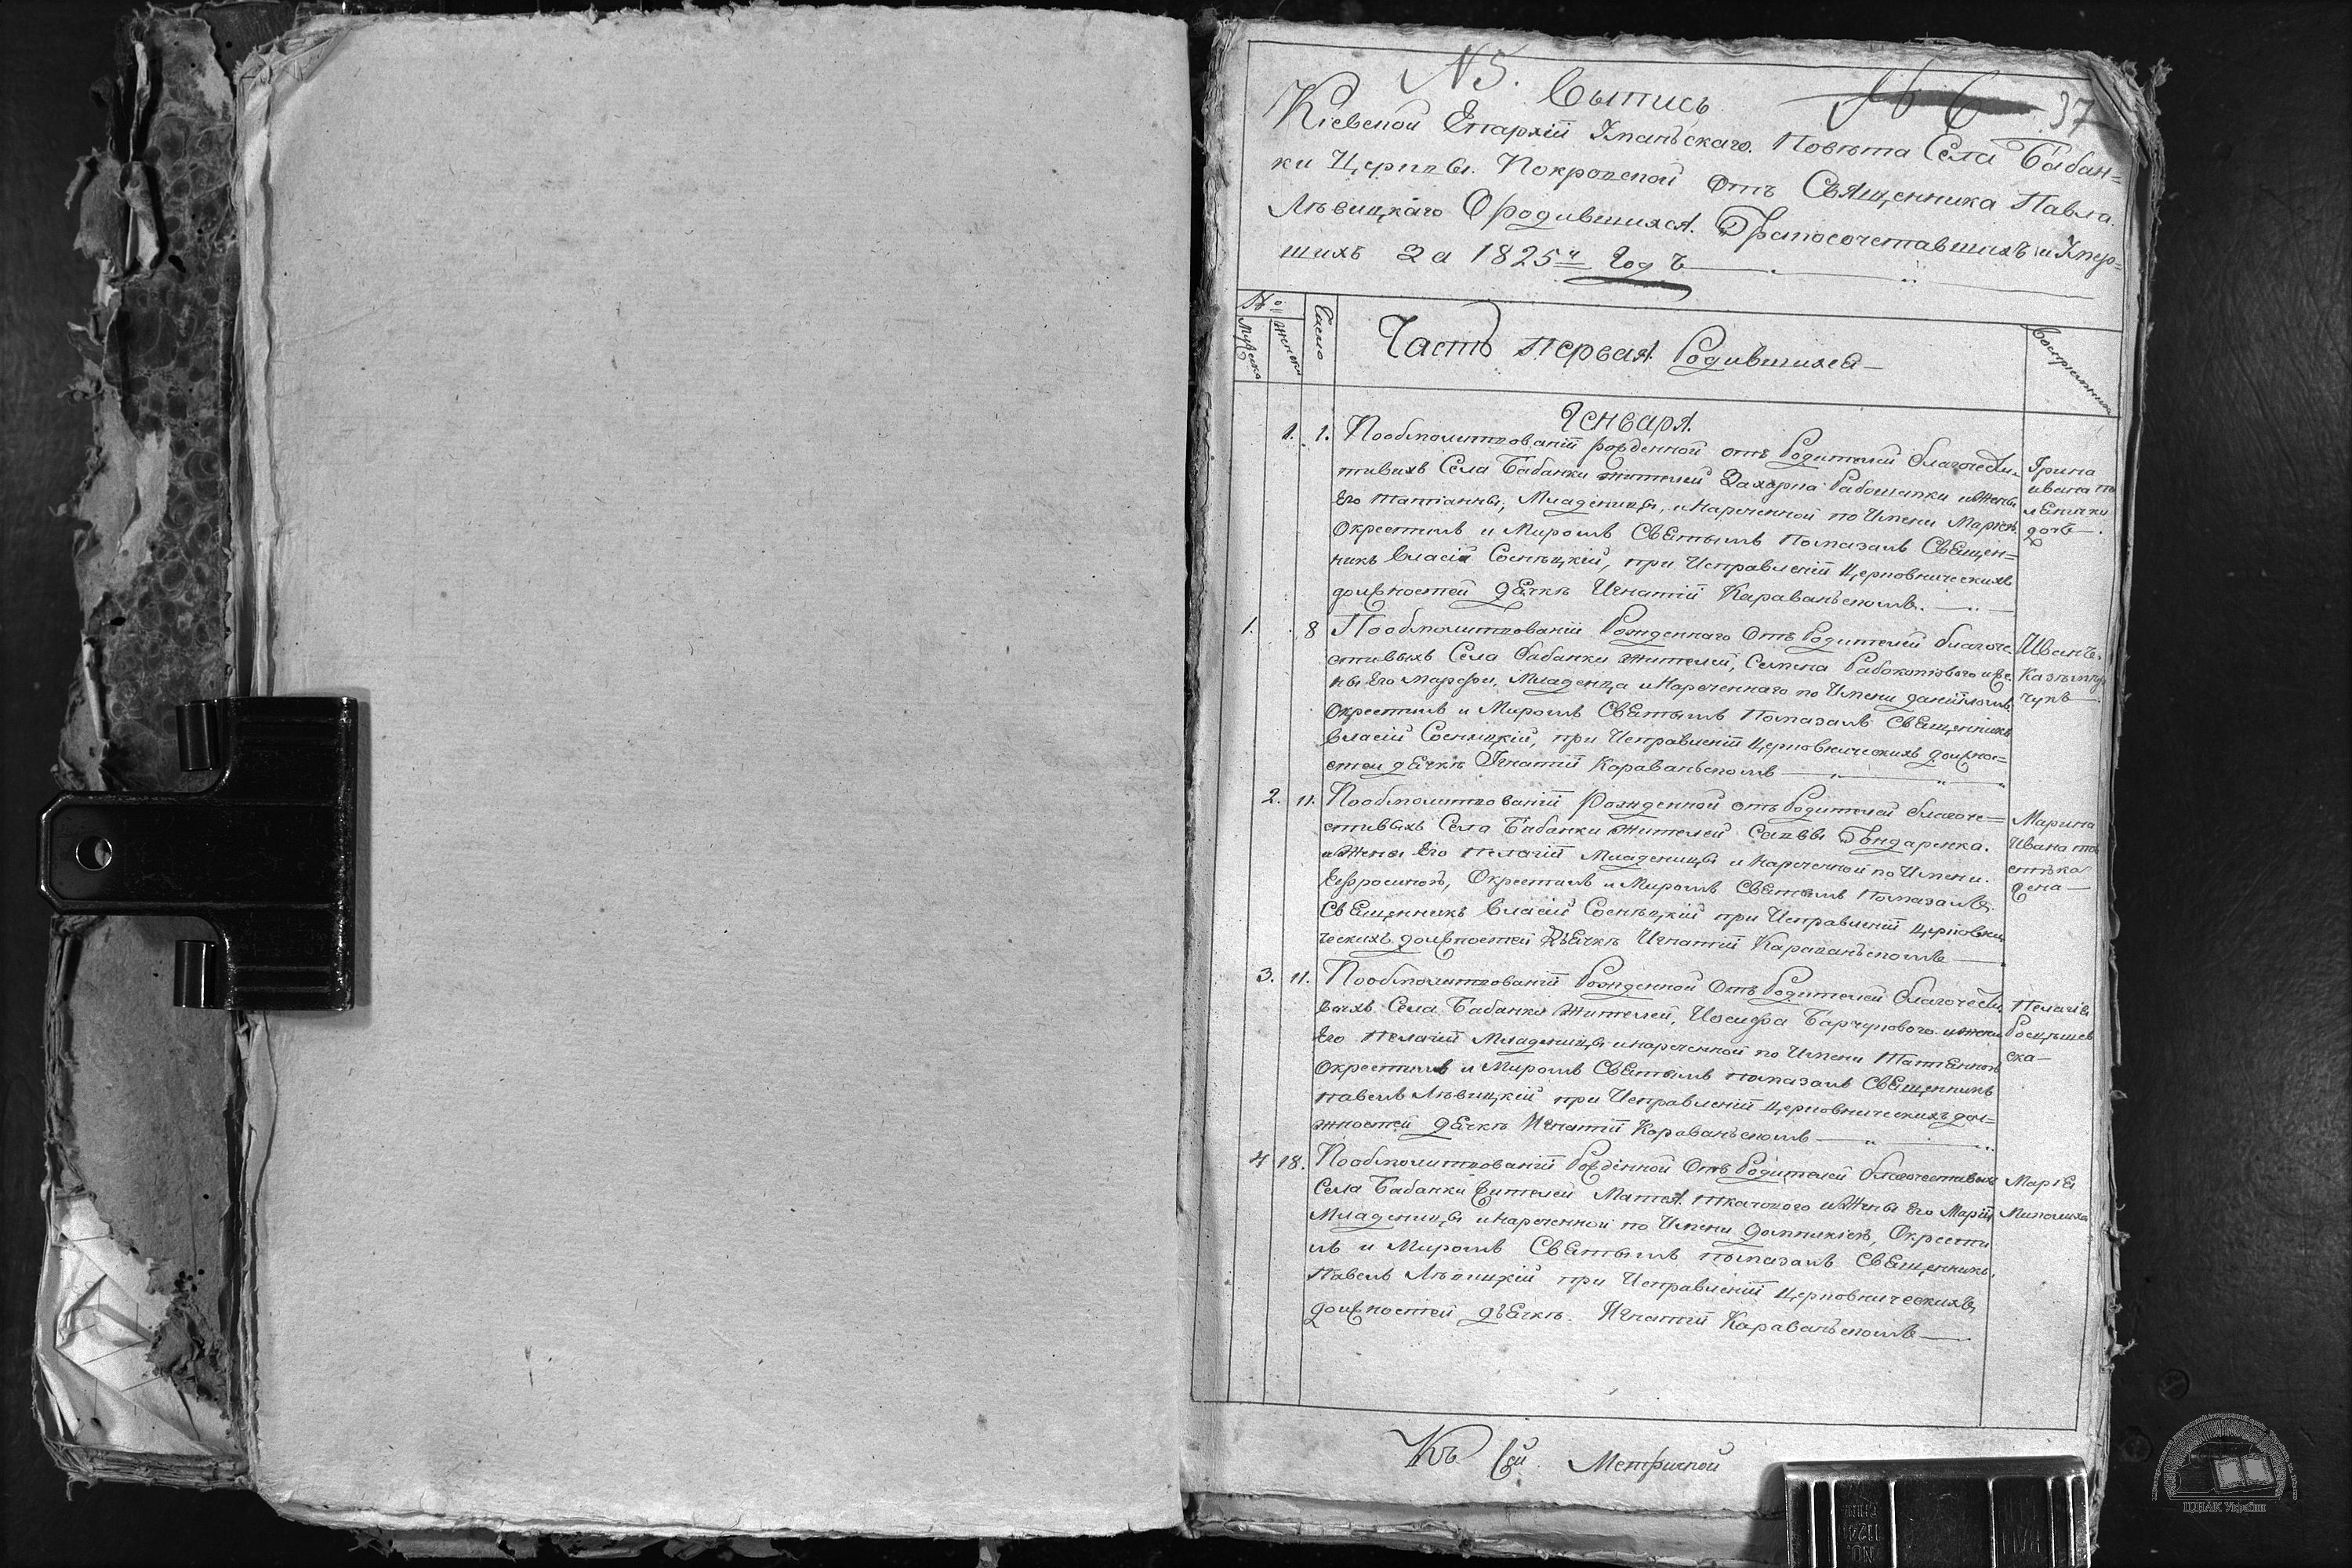 N5. Выпись 37
Кіевской Епархіи Уманьскаго Повѣта Села Бабан=
ки Церквы Покровской Отъ Священника Павла
Лѣвицкаго О родившихся Бракосочетавшихъ и Умер=
шихъ За 1825й Годъ
№
Мужеска Женска Число Часть первая Родившихся Воспріемники
Генваря
1. 1. Пообмолитвованіи рожденной отъ Родителей благочести
тивихъ Села Бабанки жителей Захарка и Жены Ирина
Его Татіанны, Младеницы, и Нареченной по Имени Ивана
Окрестилъ и Миромъ Святымъ Помазалъ Священ= дочь
никъ Власій Соснѣцкій, при Исправленіи Церковническихъ
должностей дячкѣ Игнатій Караванъскомъ
1. 8 Пообмолитвованіи Рожденнаго Отъ Родителей благоче Иванъ
стивыхъ Села Бабанки Жителей, Семена и Же
ны Его Марфы, Младенца и Нареченнаго по Имени Даніиломъ чукъ
Окрестилъ и Миромъ Святымъ Помазалъ Священникъ
Власій Соснѣцкій, при Исправленіи Церковническихъ должно=
стеи дячкѣ Игнатіи Караванъскомъ
2. 11. Пообмолитвованіи Рожденной отъ Родителей благоче= Марина
стивыхъ Села Бабанки Жителей Саввы Бондаренка Ивана
и Жены Его Пелагіи Младеницы и Нареченной по Имени
Евфросиною, Окрестилъ и Миромъ Святымъ Помазалъ жена
Священникъ Власій Соснѣцкій при Исправленіи Церковни
ческихъ должностей дьячкѣ Игнатіи Караванъскомъ
3. 11. Пообмолитвованіи Рожденной Отъ Родителей благочести Пелагія
выхъ Села Бабанки Жителей, Иосифа и жены
Его Пелагіи Младеницы и нареченной по Имени Татянною ска
Окрестилъ и Миромъ Святымъ помазалъ Священникъ
павелъ Лѣвицкій при Исправленіи Церковническихъ дол=
жностей дячкѣ Игнатіи Караванъскомъ
4 18. Пообмолитвованіи Рожденной Отъ Родителей благочестивыхъ Марія
Села Бабанки Жителей Матея и Жены Его Маріи
Младеницы и нареченной по Имени Домникіею, Окрести
лъ и Миромъ Святымъ помазалъ Священникъ
Павелъ Лѣвицкій при Исправленіи Церковническихъ
должностей дьячкѣ Игнатіи Караванъскомъ
Къ Сей Метричной
ЦДІАК України